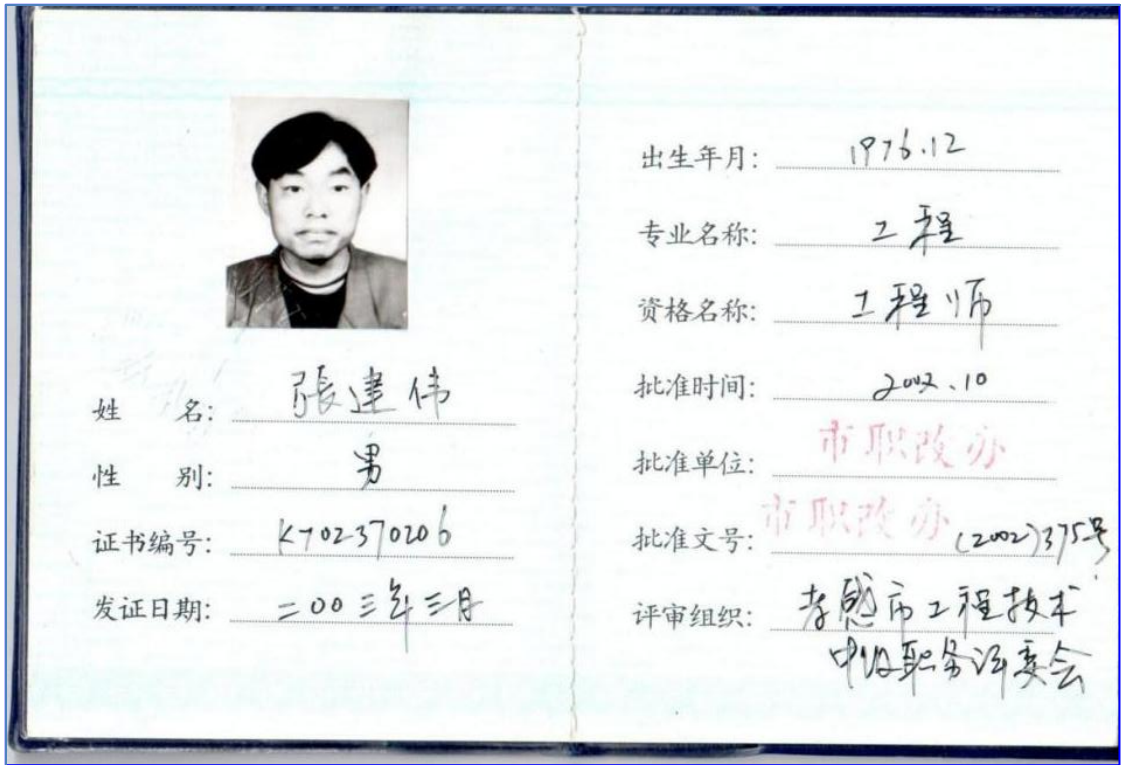 姓 名: 張建伟
性 别: 男
证书编号: K702370206
发证日期: 二00三年三月
出生年月: 1976.12
专业名称: 工程
资格名称: 工程师
批准时间: 2002.10
批准单位: 市职改办
批准文号: 市职改办(2002)375号
评审组织: 孝感市工程技术
中级职务评委会